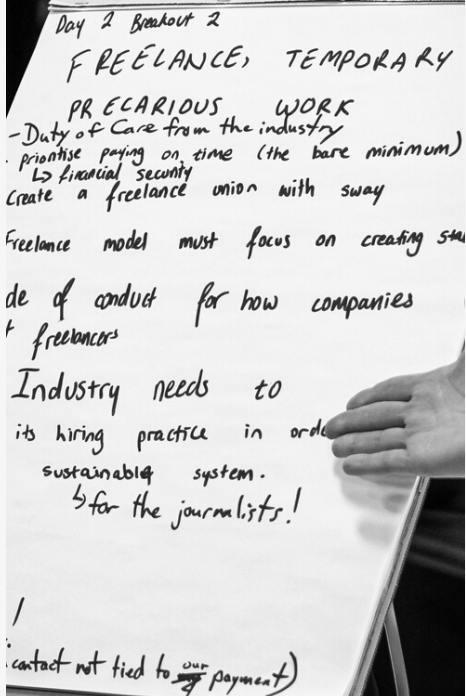 Day 2 Breakout 2
FREELANCE, TEMPORARY
PRECARIOUS WORK
-Duty of Care from the industry
. prioritise paying on time (the bare minimum)
↳ financial security
Create a freelance union with sway
Freelance model must focus on creating
of conduct for how companies
freelancers
Industry needs to
its hiring practice in
sustainable system.
↳ for the journalists!
contact not tied to our payment)